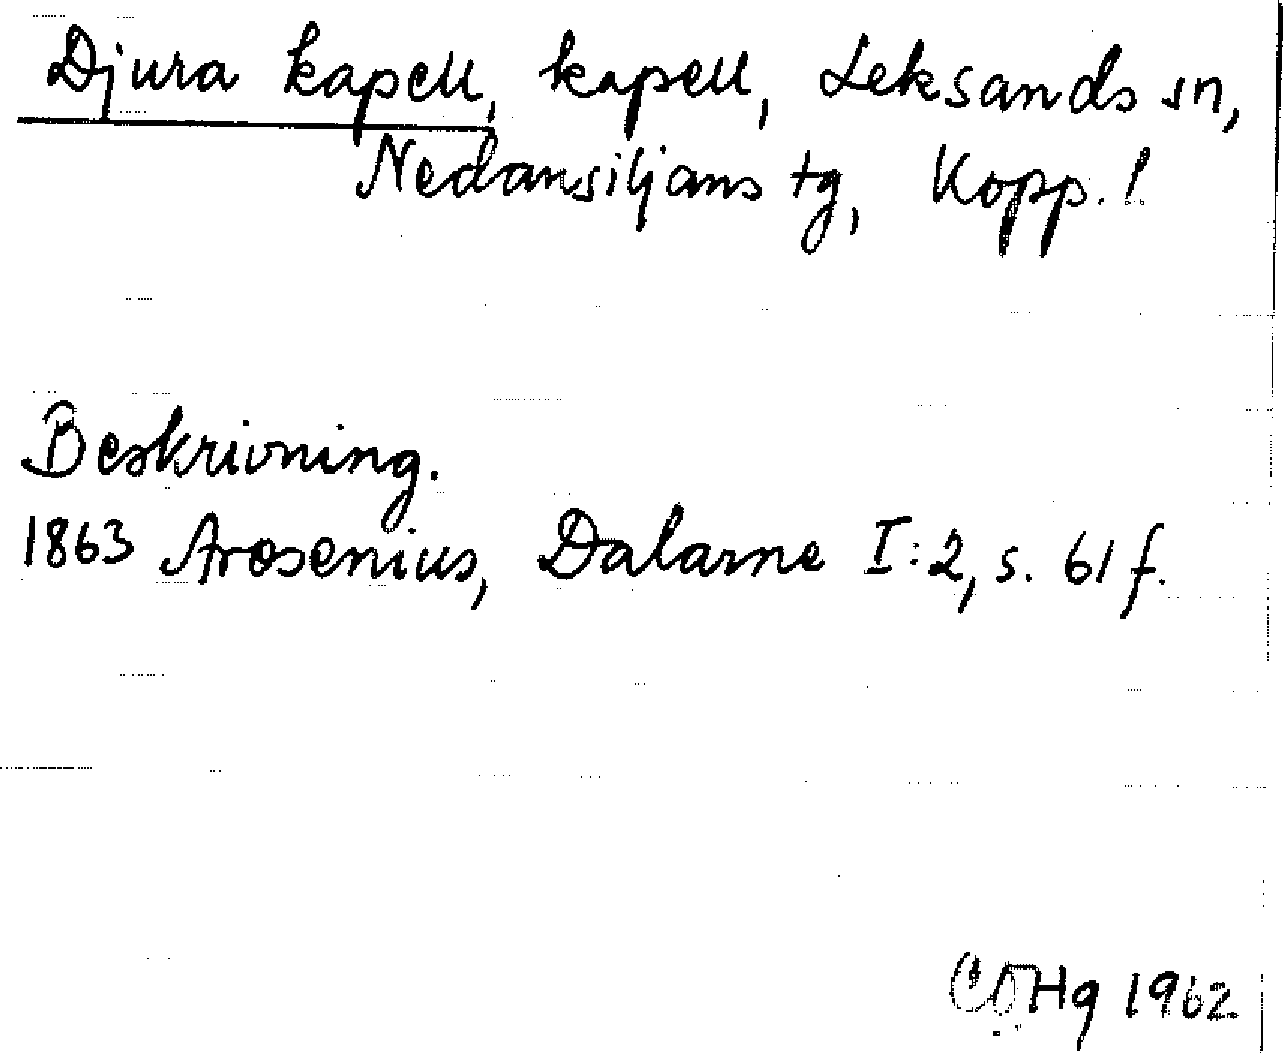 Djura kapell, kapell, Leksands sn,
Nedansiljans tg, Kopp. l.
Beskrivning.
1863 Arosenius, Dalarne I:2, s. 61 f.
1962